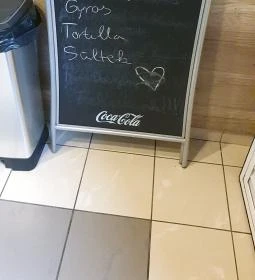 Gyros
Tortilla
Sültek
Coca-Cola